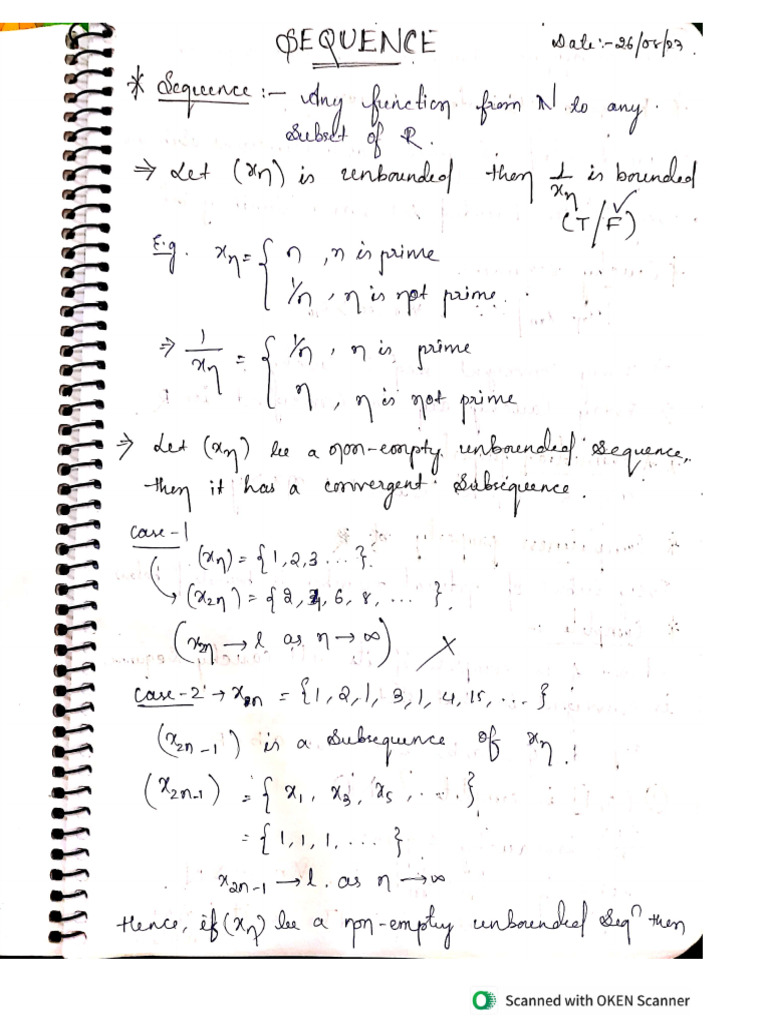 SEQUENCE
Date:-26/08/23
* Sequence :- Any function from N to any
subset of R.
⇒ Let (xn) is unbounded then 1/xn is bounded
(T/F) ✓
E.g. xn = { n , n is prime
1/n , n is not prime.
⇒ 1/xn = { 1/n , n is prime
n , n is not prime
⇒ Let (xn) be a non-empty unbounded sequence,
then it has a convergent subsequence.
case-1
(xn) = {1,2,3 ... }
(x2n) = {2, 4, 6, 8, ... }.
(x2n → l as n → ∞) X
case-2 → xn = {1, 2, 1, 3, 1, 4, 15, ... }
(x2n-1) is a subsequence of xn.
(x2n-1) = { x1, x3, x5, ... }
= {1, 1, 1, ... }
x2n-1 → l. as n → ∞
Hence, if (xn) be a non-empty unbounded seqn then
Scanned with OKEN Scanner